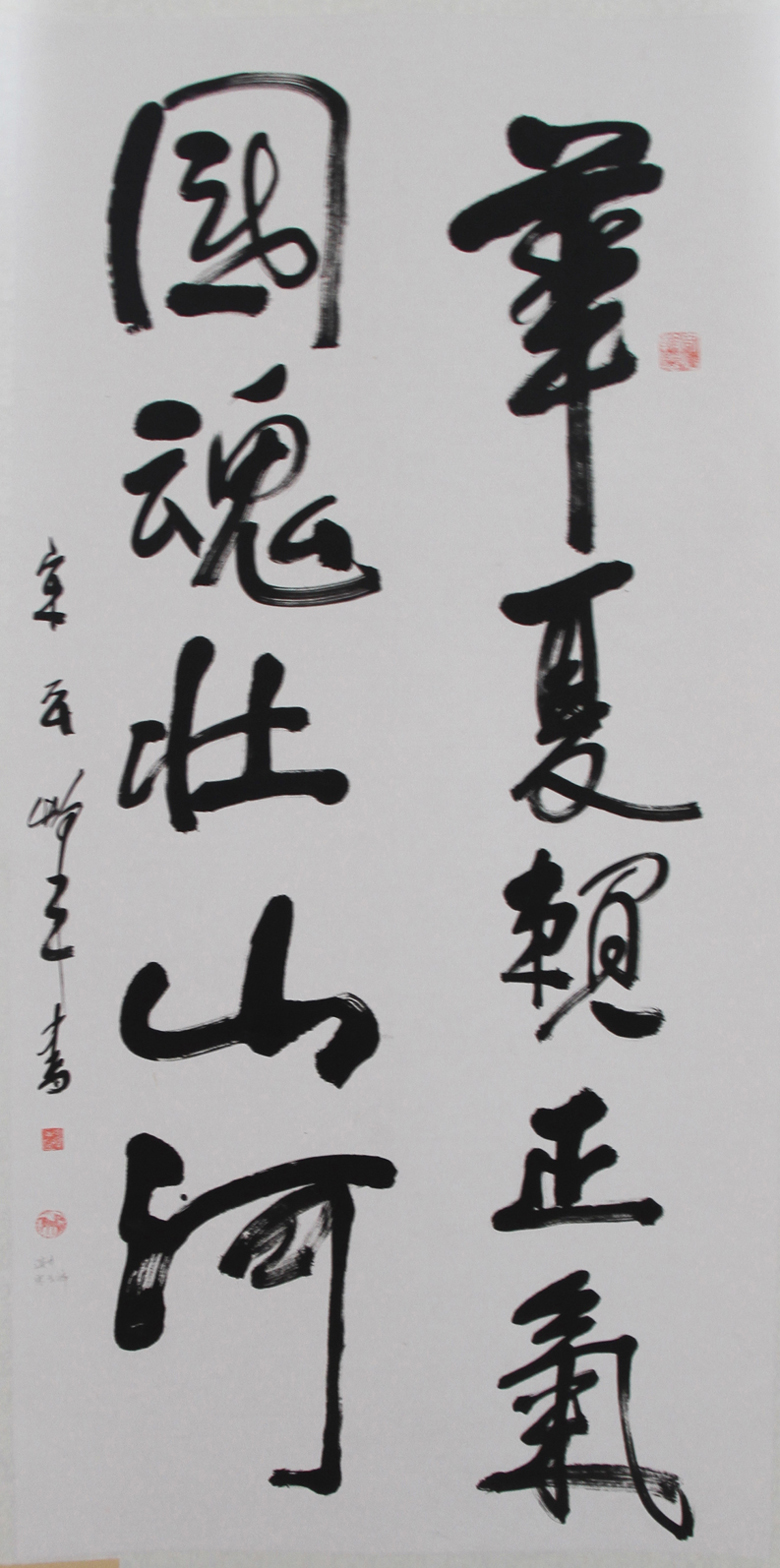 華夏賴正氣
國魂壯山河